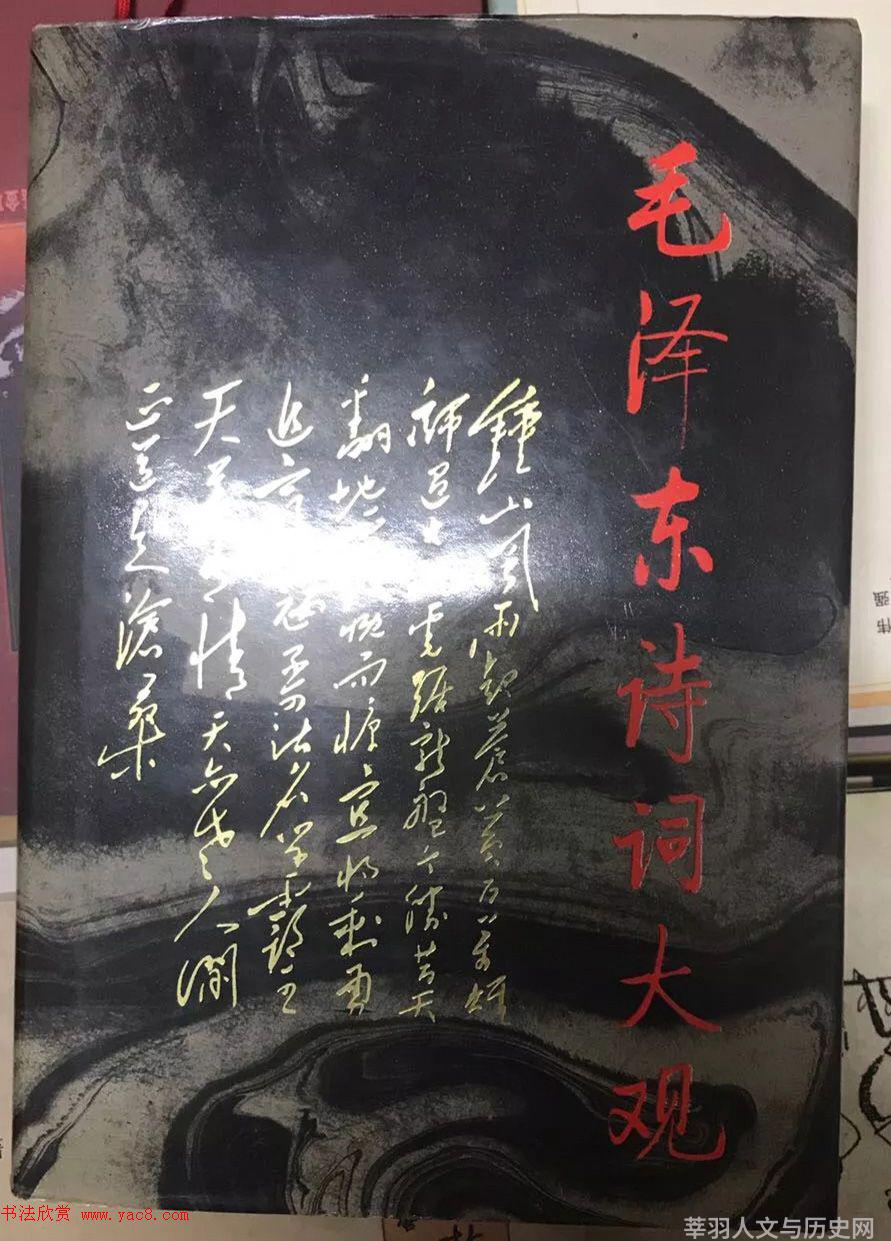 毛泽东诗词大观
鍾山風雨起蒼黄百萬雄
師過大虎踞龍盤今勝昔天
翻地慨而慷宜將剩勇
追窮不可沽名學霸王
天若有情天亦老人間
正道是滄桑
书法欣赏 www.yac8.com
莘羽人文与历史网